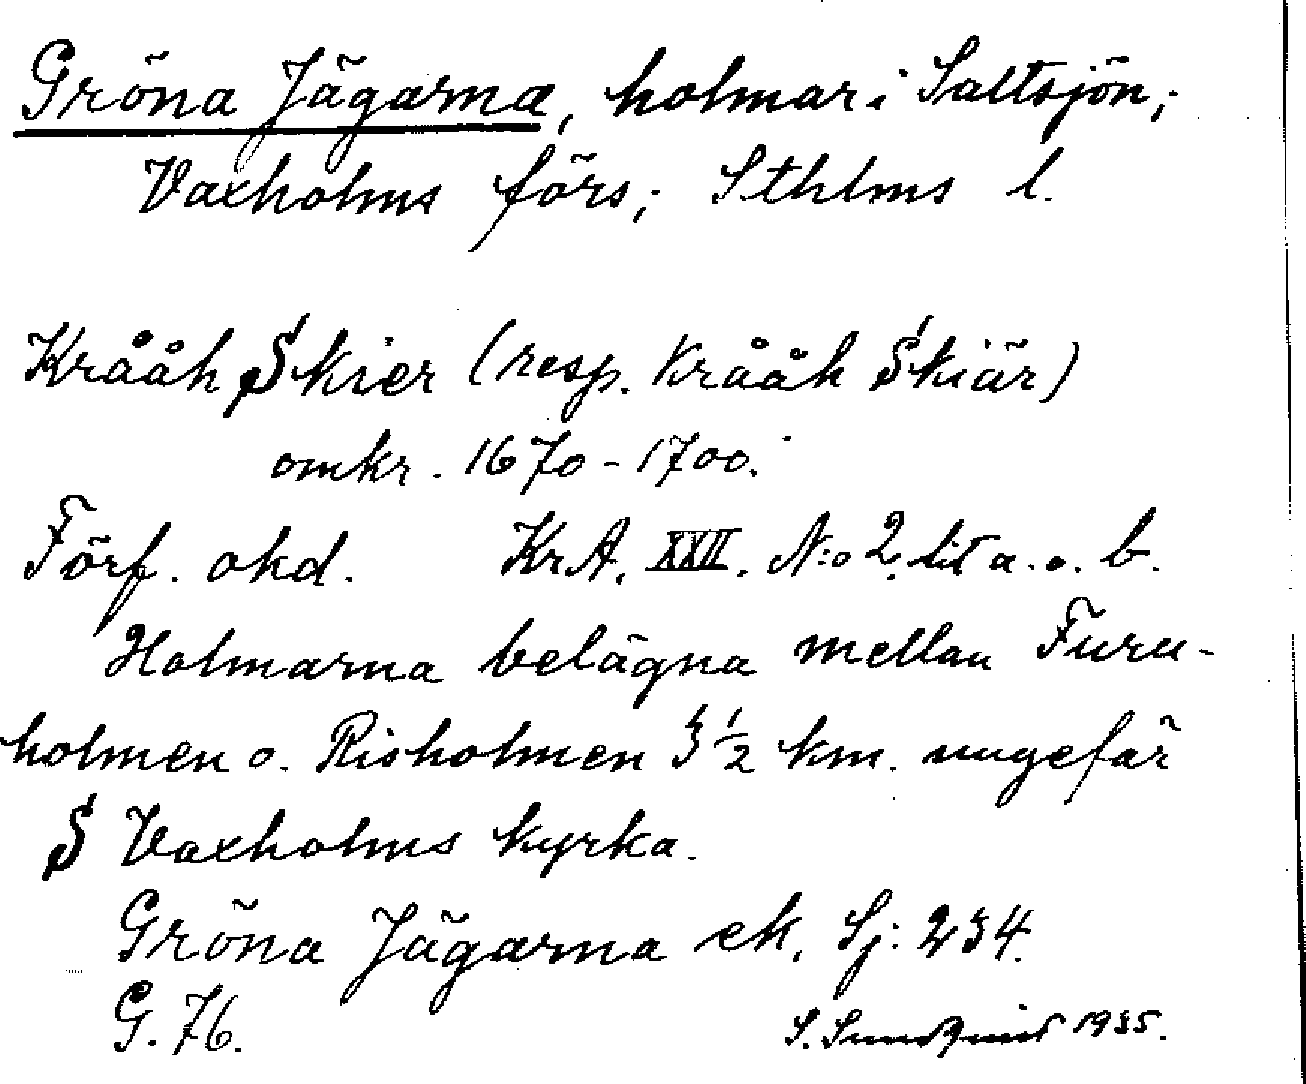 Gröna Jägarna, holmar i Saltsjön;
Vaxholms förs; Sthlms l.
Krååk Skier (resp. Krååk Skiär)
omkr. 1670-1700.
Förf. okd. KrA. XXII. N:o 2. lit a. o. b.
Holmarna belägna mellan Furu-
holmen o. Risholmen 3 1/2 km. ungefär
S Vaxholms kyrka.
Gröna Jägarna ek. Sj: 234.
G. 76.
S. Sundquist 1935.